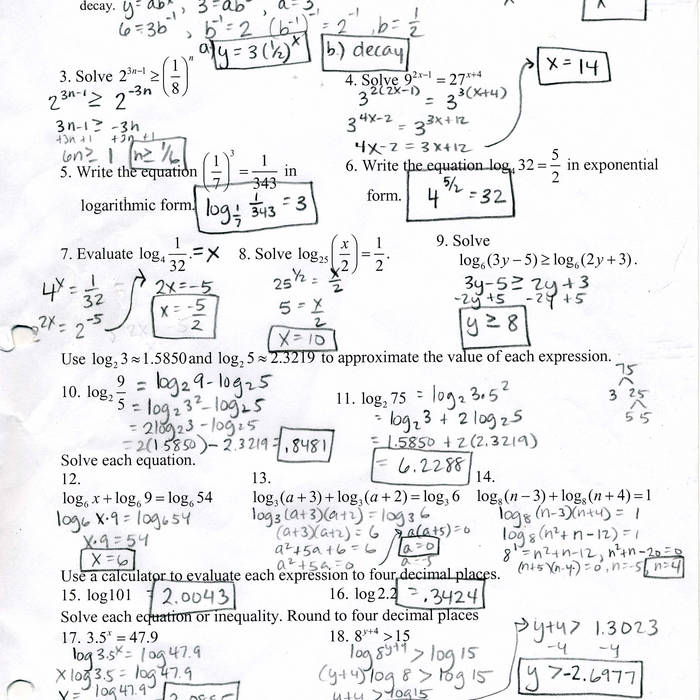 decay. y=abˣ, 3=ab⁰, a=3
6=3b⁻¹, b⁻¹=2 (b⁻¹)⁻¹=2⁻¹, b=1/2
a) y=3(1/2)ˣ b) decay
3. Solve 2³ⁿ⁻¹ ≥ (1/8)ⁿ
2³ⁿ⁻¹ ≥ 2⁻³ⁿ
3n-1 ≥ -3n
+3n+1 +3n+1
6n ≥ 1 n ≥ 1/6
4. Solve 9²ˣ⁻¹ = 27ˣ⁺⁴
3²⁽²ˣ⁻¹⁾ = 3³⁽ˣ⁺⁴⁾
3⁴ˣ⁻² = 3³ˣ⁺¹²
4x-2 = 3x+12
x=14
5. Write the equation (1/7)³ = 1/343 in
logarithmic form. log_1/7 1/343 = 3
6. Write the equation log₄ 32 = 5/2 in exponential
form. 4^5/2 = 32
7. Evaluate log₄ 1/32. = x
4ˣ = 1/32
2²ˣ = 2⁻⁵
2x = -5
x = -5/2
8. Solve log₂₅ (x/2) = 1/2.
25^1/2 = x/2
5 = x/2
x = 10
9. Solve
log₆(3y−5) ≥ log₆(2y+3).
3y-5 ≥ 2y+3
-2y+5 -2y+5
y ≥ 8
Use log₂ 3 ≈ 1.5850 and log₂ 5 ≈ 2.3219 to approximate the value of each expression.
10. log₂ 9/5 = log₂9 - log₂5
= log₂3² - log₂5
= 2log₂3 - log₂5
= 2(1.5850) - 2.3219 = .8481
11. log₂ 75 = log₂ 3·5²
= log₂3 + 2log₂5
= 1.5850 + 2(2.3219)
= 6.2288
75
3 25
5 5
Solve each equation.
12.
log₆ x + log₆ 9 = log₆ 54
log₆ x·9 = log₆54
x·9 = 54
x = 6
13.
log₃(a+3) + log₃(a+2) = log₃ 6
log₃(a+3)(a+2) = log₃6
(a+3)(a+2) = 6
a²+5a+6 = 6
a²+5a = 0
a(a+5) = 0
a=0
a=-5
14.
log₈(n−3) + log₈(n+4) = 1
log₈(n-3)(n+4) = 1
log₈(n²+n-12) = 1
8¹ = n²+n-12, n²+n-20=0
(n+5)(n-4)=0, n=-5, n=4
Use a calculator to evaluate each expression to four decimal places.
15. log101 = 2.0043
16. log 2.2 = .3424
Solve each equation or inequality. Round to four decimal places
17. 3.5ˣ = 47.9
log 3.5ˣ = log 47.9
x log 3.5 = log 47.9
x = log 47.9
18. 8ʸ⁺⁴ > 15
log 8ʸ⁺⁴ > log 15
(y+4) log 8 > log 15
y+4 > log 15
y+4 > 1.3023
-4 -4
y > -2.6977